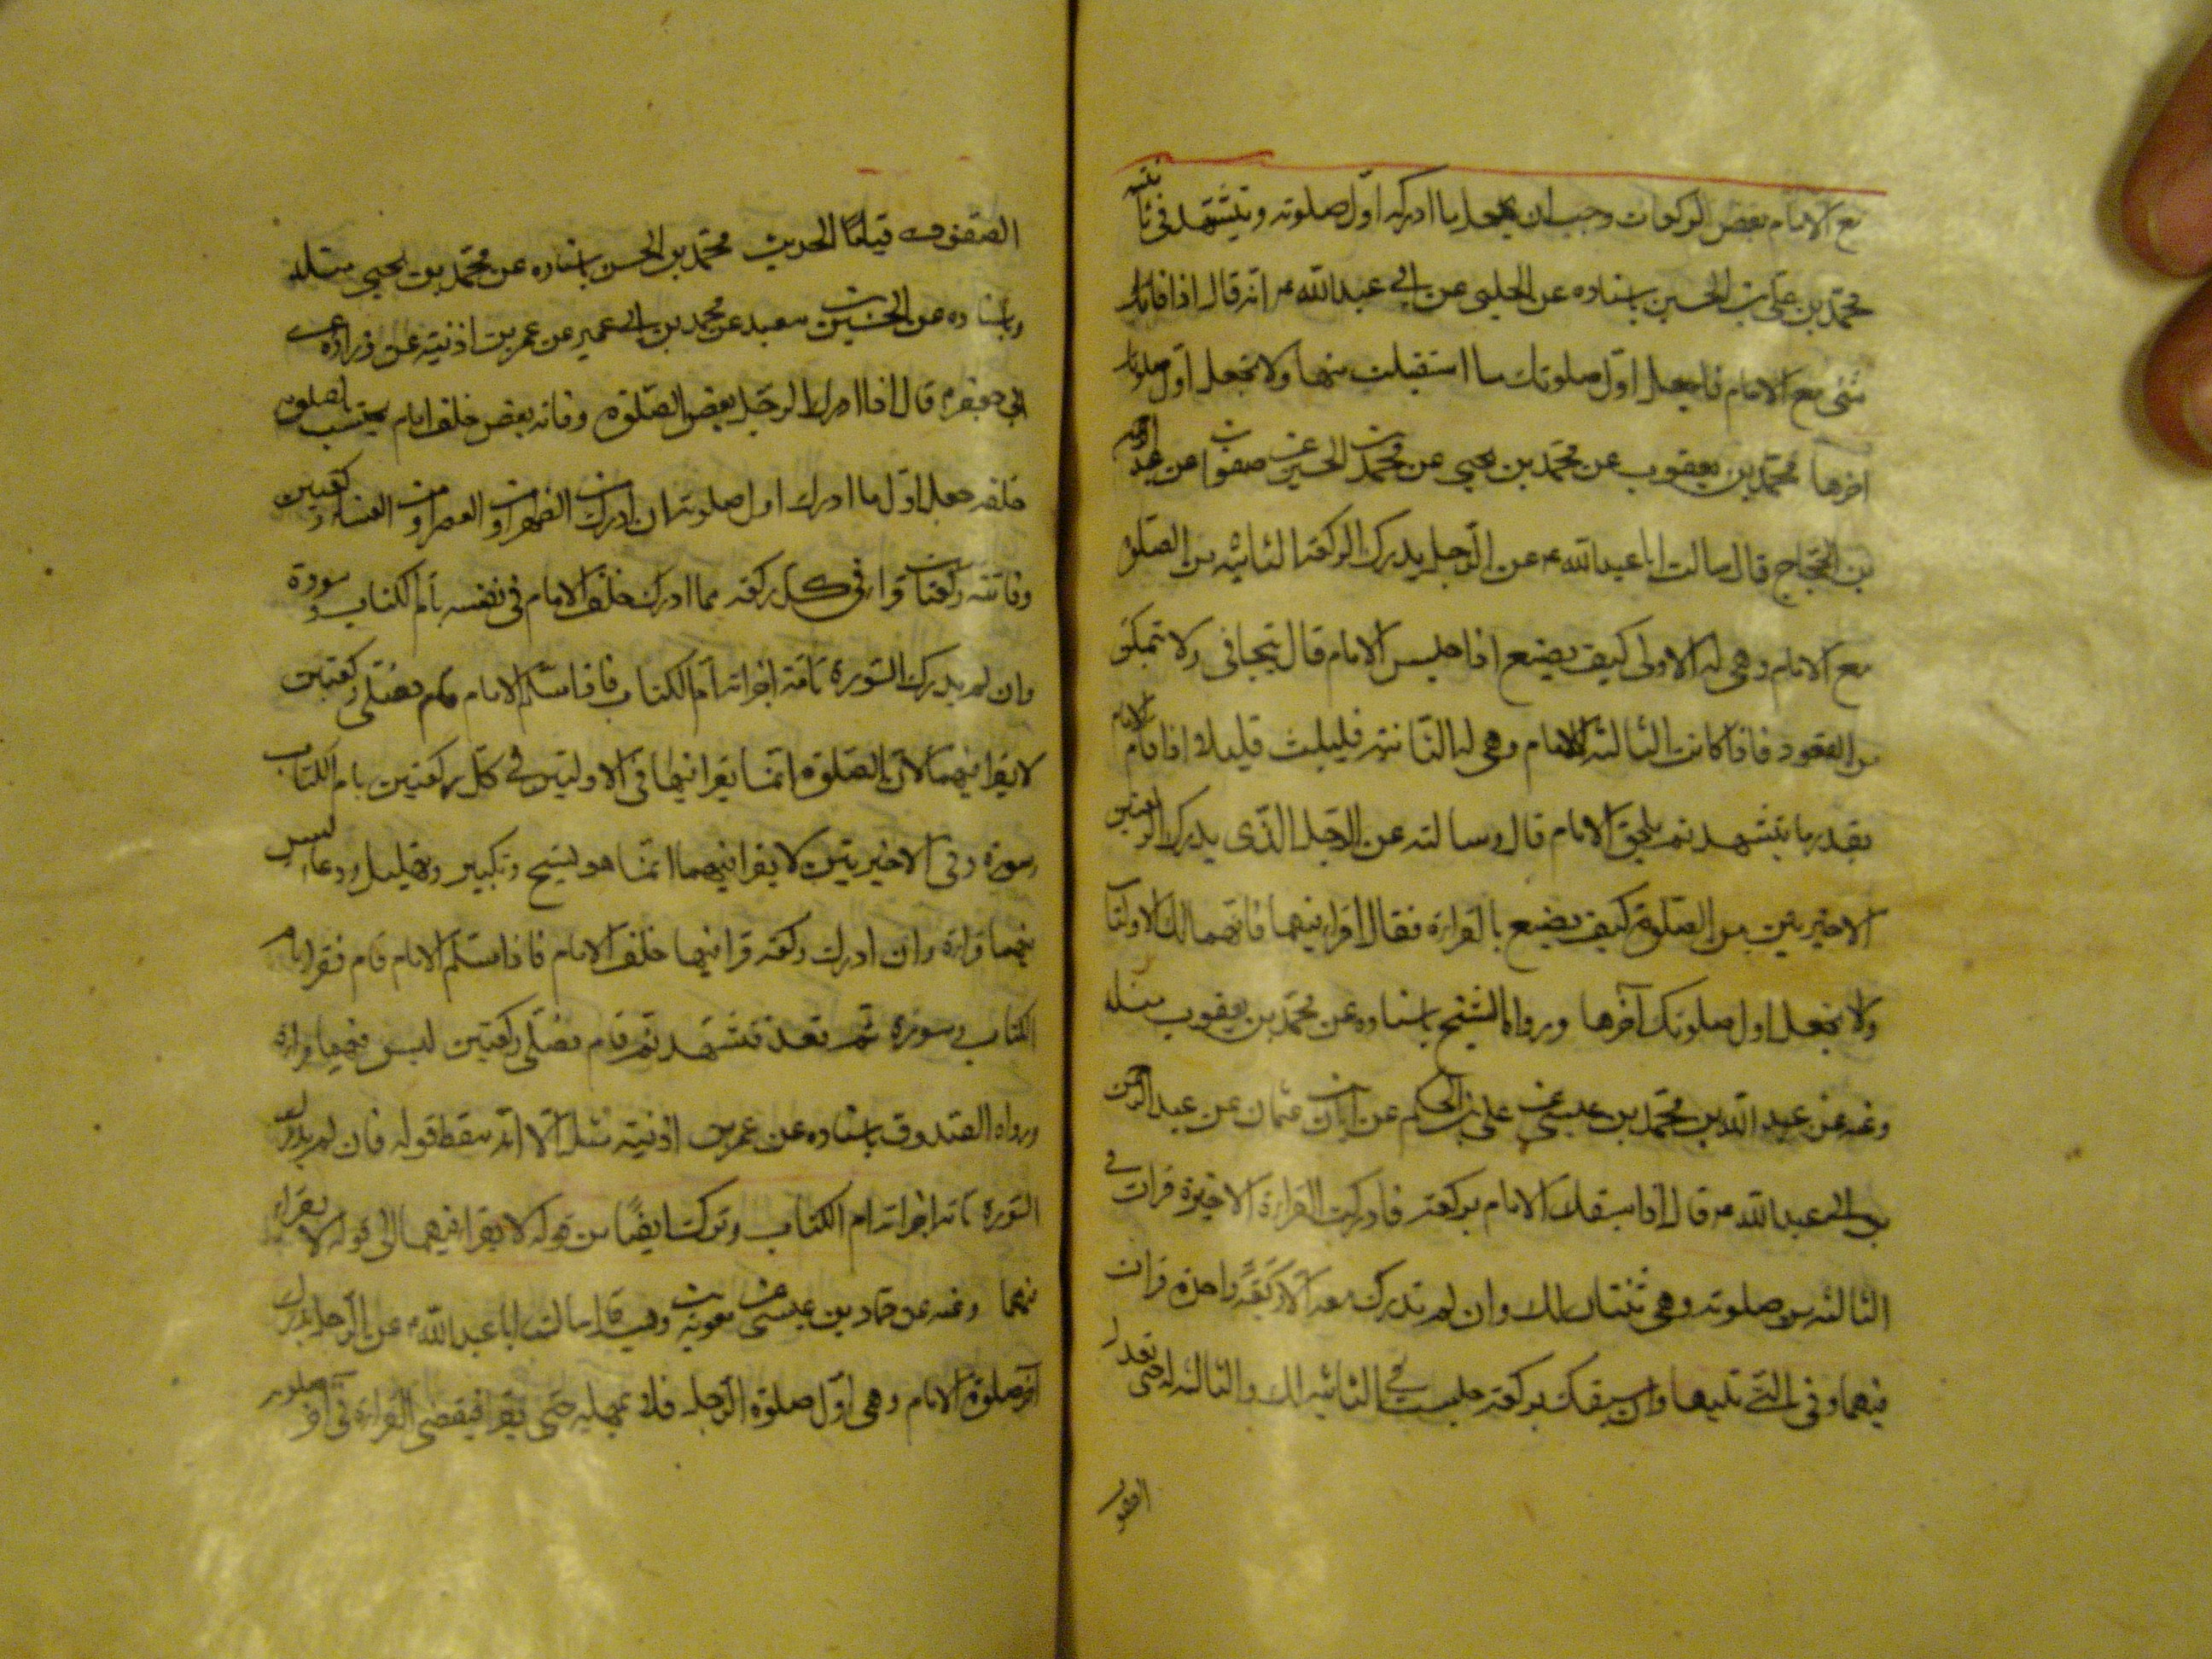 مع الامام بعض الركعات وجب ان يجعل ما ادركه اول صلوته ويتشهد في ثانيته
محمد بن علي بن الحسين باسناده عن الحلبي عن ابي عبد الله ع انه قال اذا فاتك
شئ مع الامام فاجعل اول صلوتك ما استقبلت منها ولا تجعل اول صلوتك
اخرها محمد بن يعقوب عن محمد بن يحيى عن محمد بن الحسين عن صفوان عن عبد الرحمن
بن الحجاج قال سالت ابا عبد الله ع عن الرجل يدرك الركعة الثانية من الصلوة
مع الامام وهي له الاولى كيف يصنع اذا جلس الامام قال يتجافى ولا يتمكن
من القعود فاذا كانت الثالثة للامام وهي له الثانية فليلبث قليلا اذا قام الامام
بقدر ما يتشهد ثم يلحق الامام قال وسالته عن الرجل الذي يدرك الركعتين
الاخيرتين من الصلوة كيف يصنع بالقراءة فقال اقرا فيهما فانهما لك الاولتان
ولا تجعل اول صلوتك آخرها ورواه الشيخ باسناده عن محمد بن يعقوب مثله
وعنه عن عبد الله بن محمد بن عيسى عن علي بن الحكم عن ابان بن عثمان عن عبد الرحمن
بن ابي عبد الله ع قال اذا سبقك الامام بركعة فادركت القراءة الاخيرة قرات في
الثالثة من صلوته وهي ثنتان لك وان لم تدرك معه الا ركعة واحدة قرات
فيها وفي التي تليها وان سبقك بركعة جلست في الثانية لك والثالثة له حتى تعتدل
الصفوف
الصفوف قياما الحديث محمد بن الحسن باسناده عن محمد بن يحيى مثله
وباسناده عن الحسين بن سعيد عن محمد بن ابي عمير عن عمر بن اذينة عن زرارة عن
ابي جعفر ع قال اذا ادرك الرجل بعض الصلوة وفاته بعض خلف امام يحتسب بالصلوة
خلفه جعل اول ما ادرك اول صلوته ان ادرك من الظهر او من العصر او من العشاء ركعتين
وفاتته ركعتان قرا في كل ركعة مما ادرك خلف الامام في نفسه بام الكتاب وسورة
وان لم يدرك السورة تامة اجزاته ام الكتاب فاذا سلم الامام قام فصلى ركعتين
لا يقرا فيهما لان الصلوة انما يقرا فيها في الاولتين في كل ركعتين بام الكتاب
وسورة وفي الاخيرتين لا يقرا فيهما انما هو تسبيح وتكبير وتهليل ودعاء ليس
فيهما قراءة وان ادرك ركعة قرا فيها خلف الامام فاذا سلم الامام قام فقرا بام
الكتاب وسورة ثم قعد فتشهد ثم قام فصلى ركعتين ليس فيهما قراءة
ورواه الصدوق باسناده عن عمر بن اذينة مثله الا انه سقط قوله فان لم يدرك
السورة تامة اجزاته ام الكتاب وترك ايضا من قوله لا يقرا فيهما الى قوله لا يقراء
فيهما وعنه عن حماد بن عيسى عن معوية بن وهب قال سالت ابا عبد الله ع عن الرجل يدرك
آخر صلوة الامام وهي اول صلوة الرجل فلا يمهله حتى يقرا فيقضي القراءة في آخر صلوته